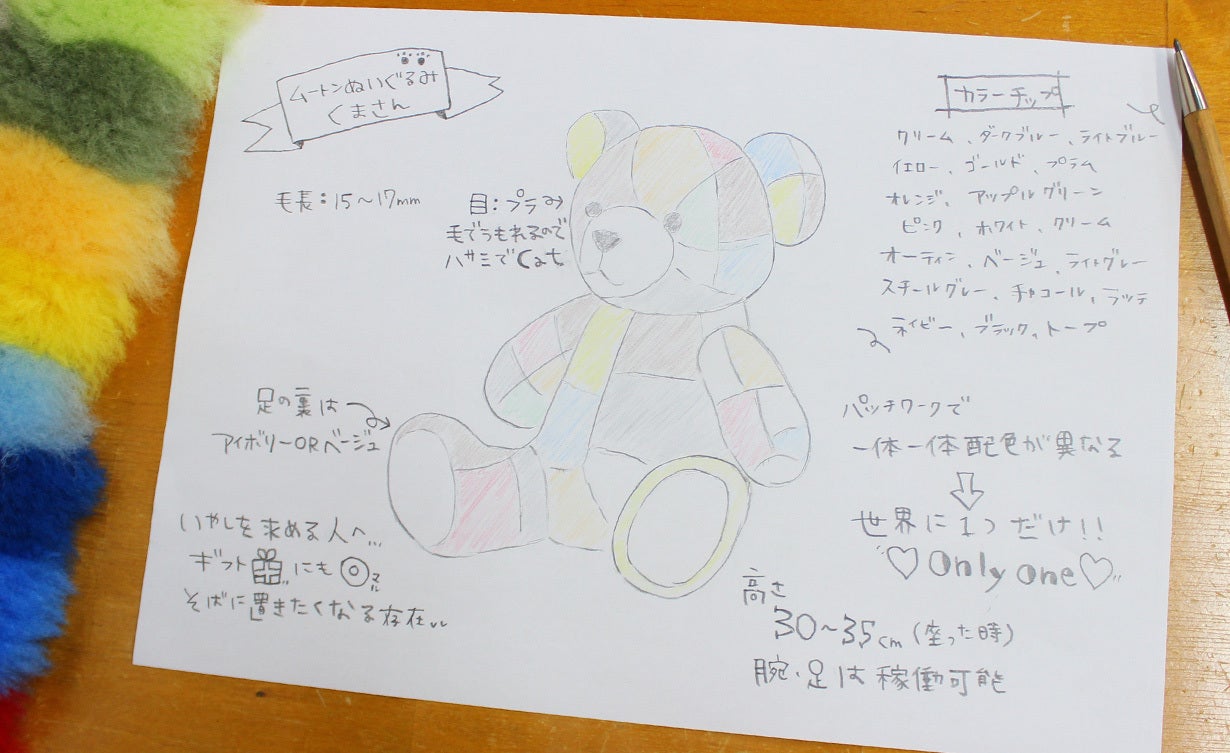 ムートンぬいぐるみ
くまさん
毛長：15〜17mm
目：プラ
毛でうもれるので
ハサミでCat
カラーチップ
クリーム、ダークブルー、ライトブルー
イエロー、ゴールド、プラム
オレンジ、アップルグリーン
ピンク、ホワイト、クリーム
オーティン、ベージュ、ライトグレー
スチールグレー、チャコール、ラッテ
ネイビー、ブラック、トープ
足の裏は
アイボリーORベージュ
パッチワークで
一体一体配色が異なる
世界に1つだけ!!
♡Only one♡
いやしを求める人へ...
ギフトにも◎マル
そばに置きたくなる存在
高さ
30〜35cm(座った時)
腕・足は稼働可能